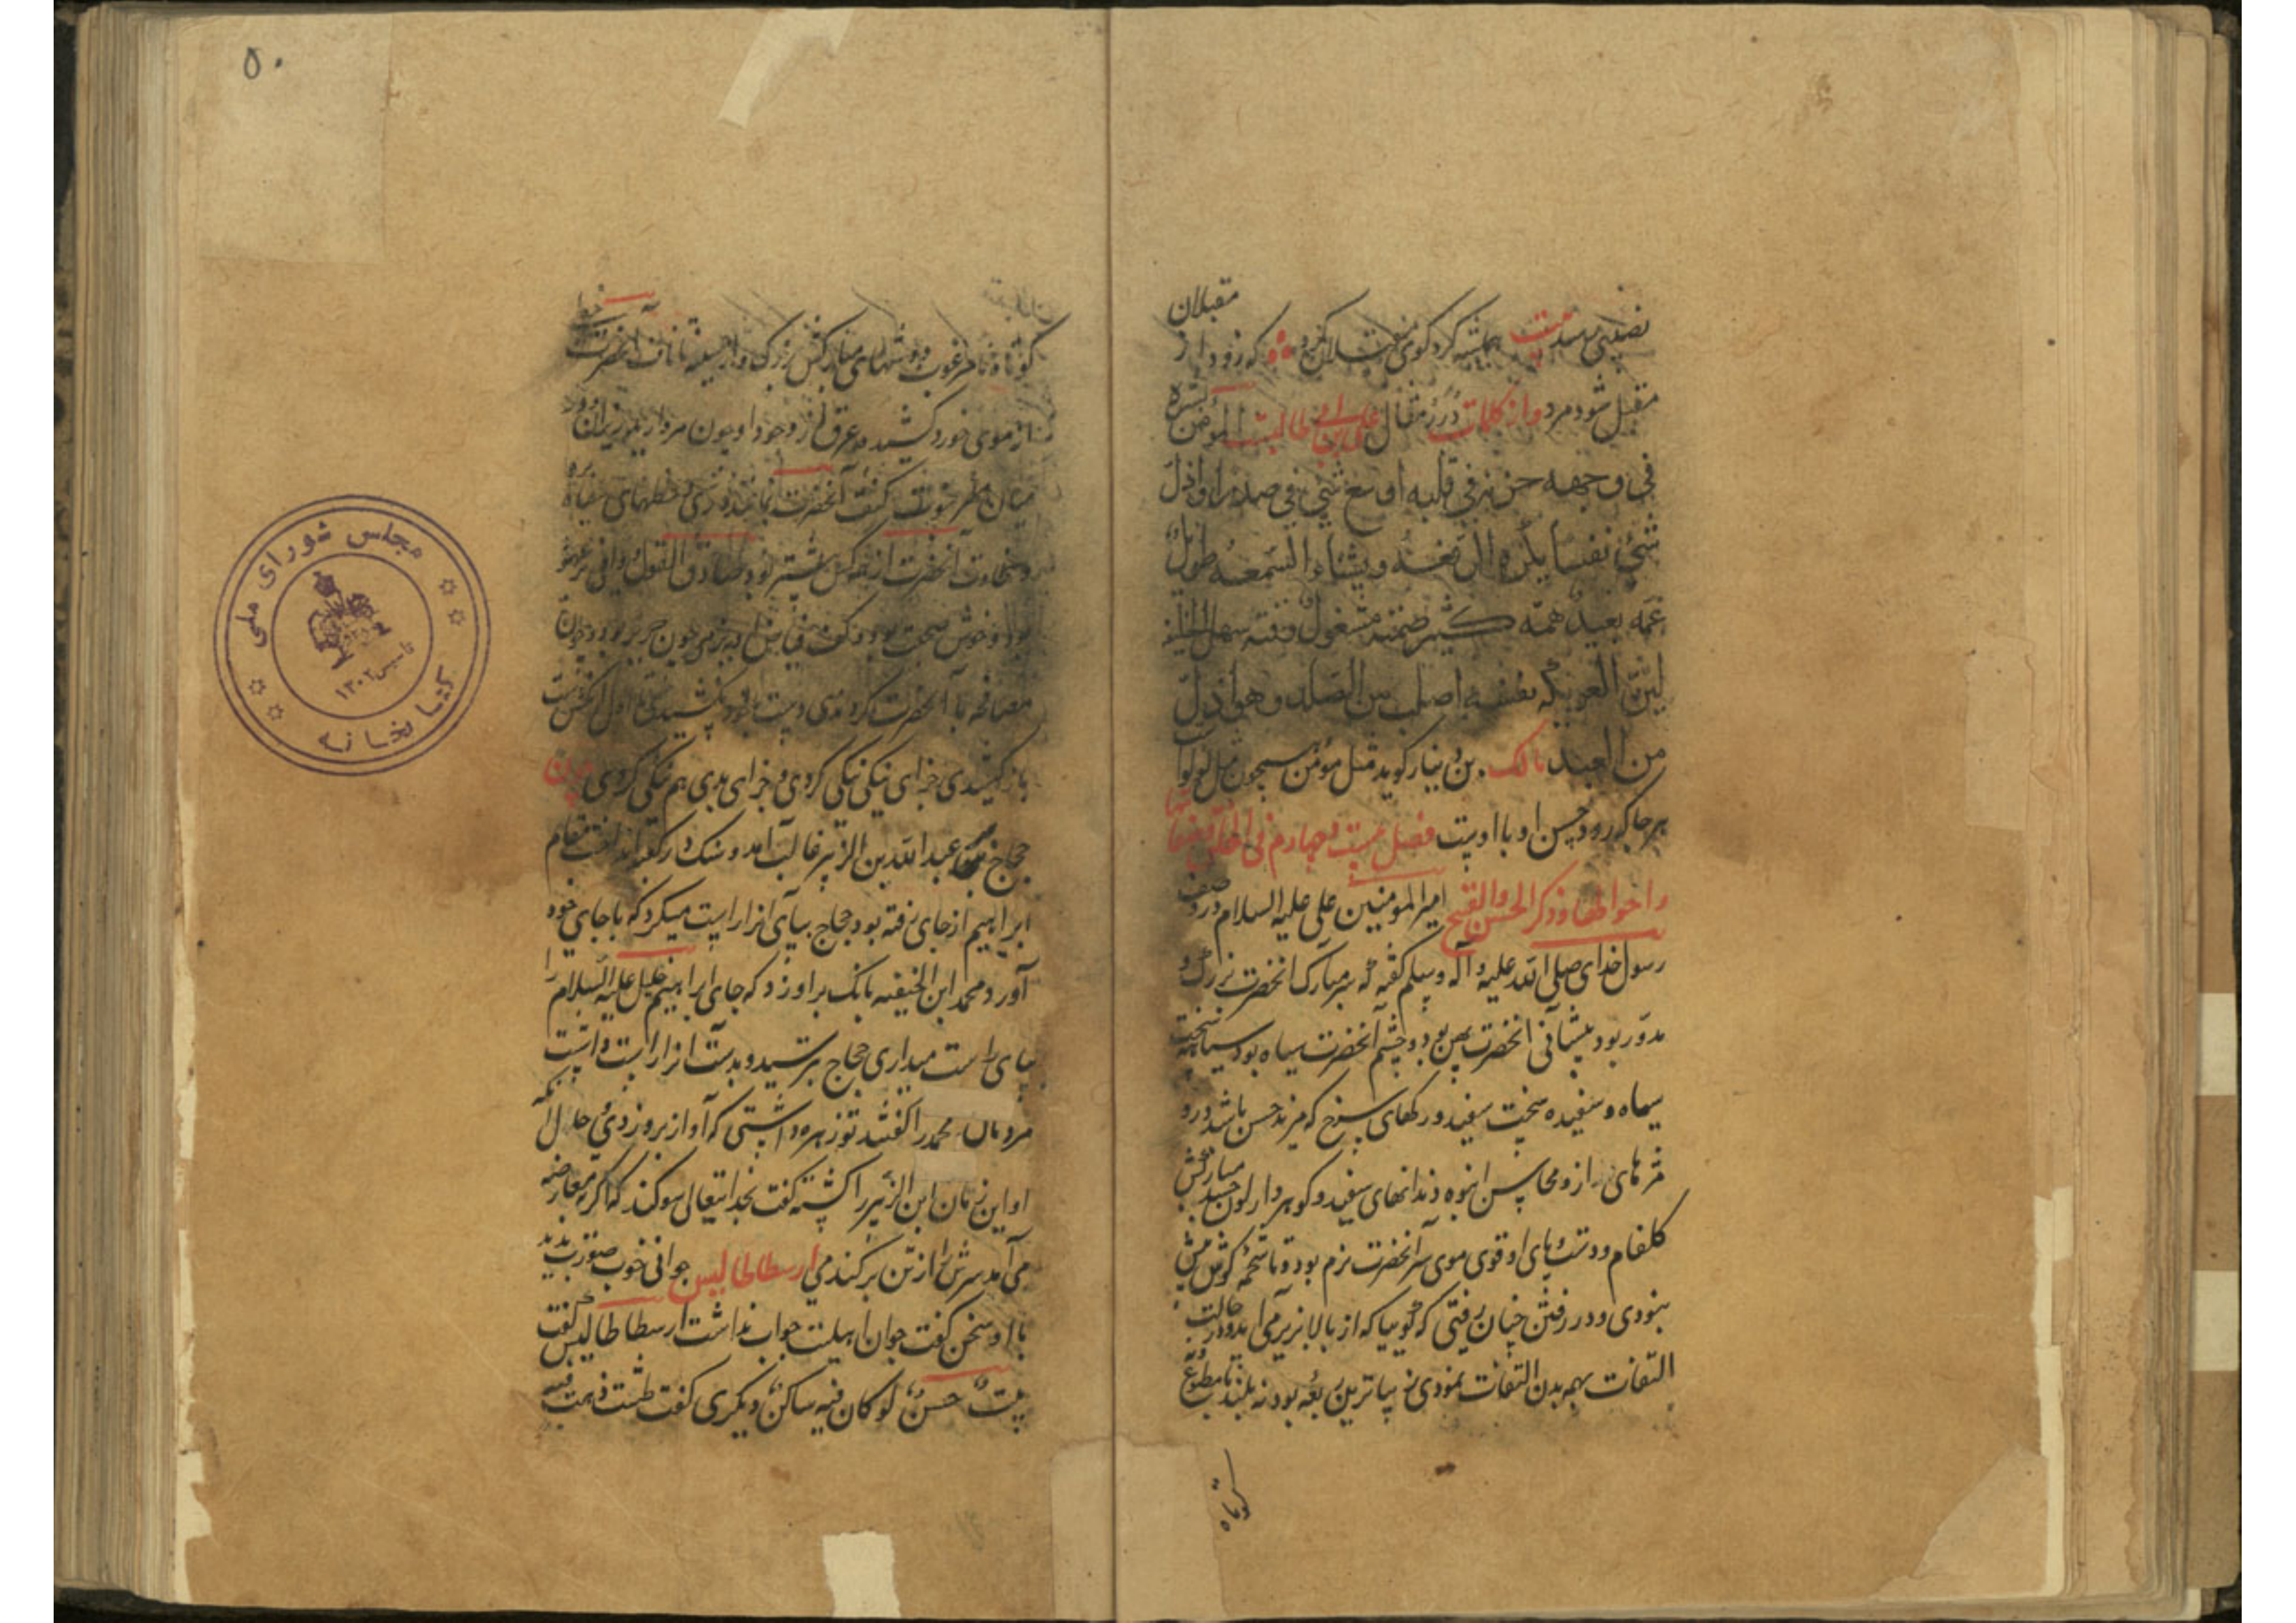 مقبلان
نصیبی بیت همیشه گرد کوی مقبلان گرد که زود از
مقبل شود مرد واز کلمات درر مقال علی ابن ابی طالب المؤمن بشره
فی وجهه حزنه فی قلبه اوسع شیء فی صدرا واذل
شیء نفسا یکره الرفعة ویشناء السمعة طویل
غمه بعید همه کثیر صمته مشغول وقته سهل الخلیقة
لین العریکه نفسه اصلب من الصلد وهو اذل
من العبد مالک بن دینار گوید مثل مؤمن همچون مثل لؤلؤ است
هر جا که رود حسن او با اوست فصل بیست و چهارم فی
واحوالها وذکر الحسن والقبح امیر المومنین علی علیه السلام در وصف
رسول خدای صلی الله علیه وآله وسلم گفته که سر مبارک آنحضرت بزرگ و
مدور بود پیشانی آنحضرت پهن بود و چشم آنحضرت سیاه بود سیاهه سخت
سیاه و سفیده سخت سفید و رکهای سرخ که مزید حسن باشد درو
مژهای دراز و محاسن انبوه دندانهای سفید و کوهردار لون جسد مبارکش
گلفام و دست و پای او قوی موی سر آنحضرت نرم بود و تا شحمه گوش بیش
نبودی و در رفتن چنان رفتی که گوییا که از بالا بزیر می آید و در حالت
التفات بهمه بدن التفات نمودی نه بلند
کوتاه
۵۰
کوتاه نامرغوب و دوشهای مبارکش بزرگ و از سینه تا ناف آنحضرت خطی
از موی خورد کشیده عرق از وجود او چون مروارید ریزان و در
میان کتف آنحضرت
سخاوت آنحضرت از همه کس بیشتر بود صادق القول وافی
بود و خوش صحبت بود و کف بنرمی چون حریر بود و چون
مصافحه با آنحضرت کردندی دست اول
باز کشیدی جزای نیکی نیکی کردی و جزای بدی هم نیکی کردی چون
حجاج عبد الله بن الزبیر غالب آمد و سنک در کعبه انداخت مقام
ابراهیم از جای رفته بود حجاج بپای آنرا راست میکرد که با جای خود
آورد محمد ابن الحنفیه بانک بر او زد که جای ابراهیم خلیل علیه السلام را
بپای راست میداری حجاج بترسید و بدست آنرا راست داشت
مردمان محمد را گفتند تو زهره داشتی که آواز برو زدی حال آنکه
او این زمان ابن الزبیر را کشته گفت بخدایتعالی سوگند که اگر بمعارضه
می آمد سرش را از تن بر کندمی ارسطاطالیس جوانی خوب صورت بدید
با او سخن گفت جوان اهلیت جواب نداشت ارسطاطالیس گفت
بیت حسن لو کان فیه ساکن دیگری گفت طشت ذهب فیه
مجلس شورای ملی
کتابخانه
تاسیس ۱۳۰۲